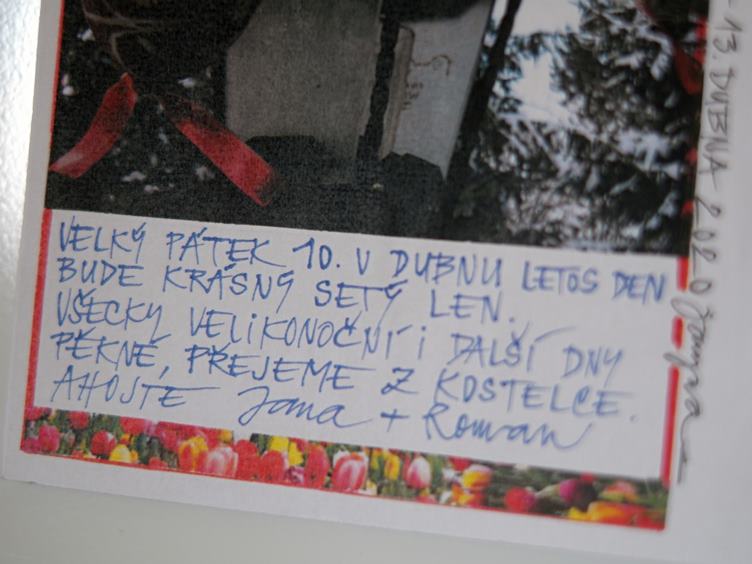 VELKÝ PÁTEK 10. V DUBNU LETOS DEN
BUDE KRÁSNÝ SETÝ LEN.
VŠECKY VELIKONOČNÍ I DALŠÍ DNY
PĚKNÉ, PŘEJEME Z KOSTELCE.
AHOJTE Jana + Roman
13. DUBNA 2020